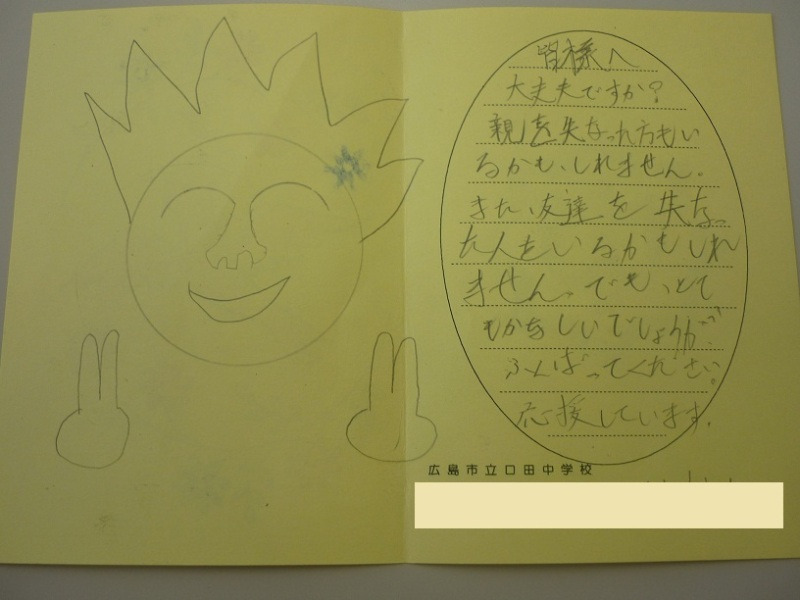 皆様へ
大丈夫ですか?
親を失なった方もい
るかも、しれません。
また、友達を失なっ
た人もいるかもしれ
ません。でも、とて
もかなしいでしょうが、
ふんばってください。
応援しています。
広島市立口田中学校